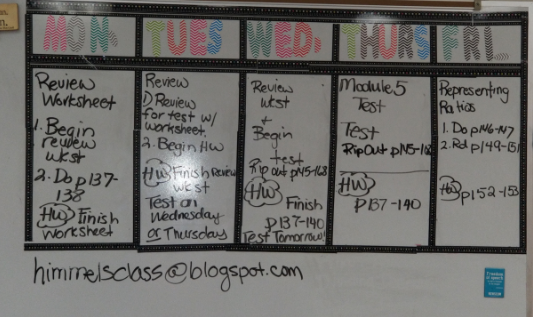 MON.
TUES
WED.
THURS
FRI.
Review
Worksheet
1. Begin
review
wkst
2. Do p137-
138
HW Finish
Worksheet
Review
1) Review
for test w/
worksheet.
2. Begin HW
HW Finish Review
wkst
Test on
Wednesday
or Thursday
Review
wkst
+
Begin
test
Rip out p145-168
HW Finish
p137-140
Test Tomorrow!
Module 5
Test
Test
Rip Out p145-168
HW
p137-140
Representing
Ratios
1. Do p146-147
2. Rd p149-151
HW p152-153
himmelsclass@blogspot.com